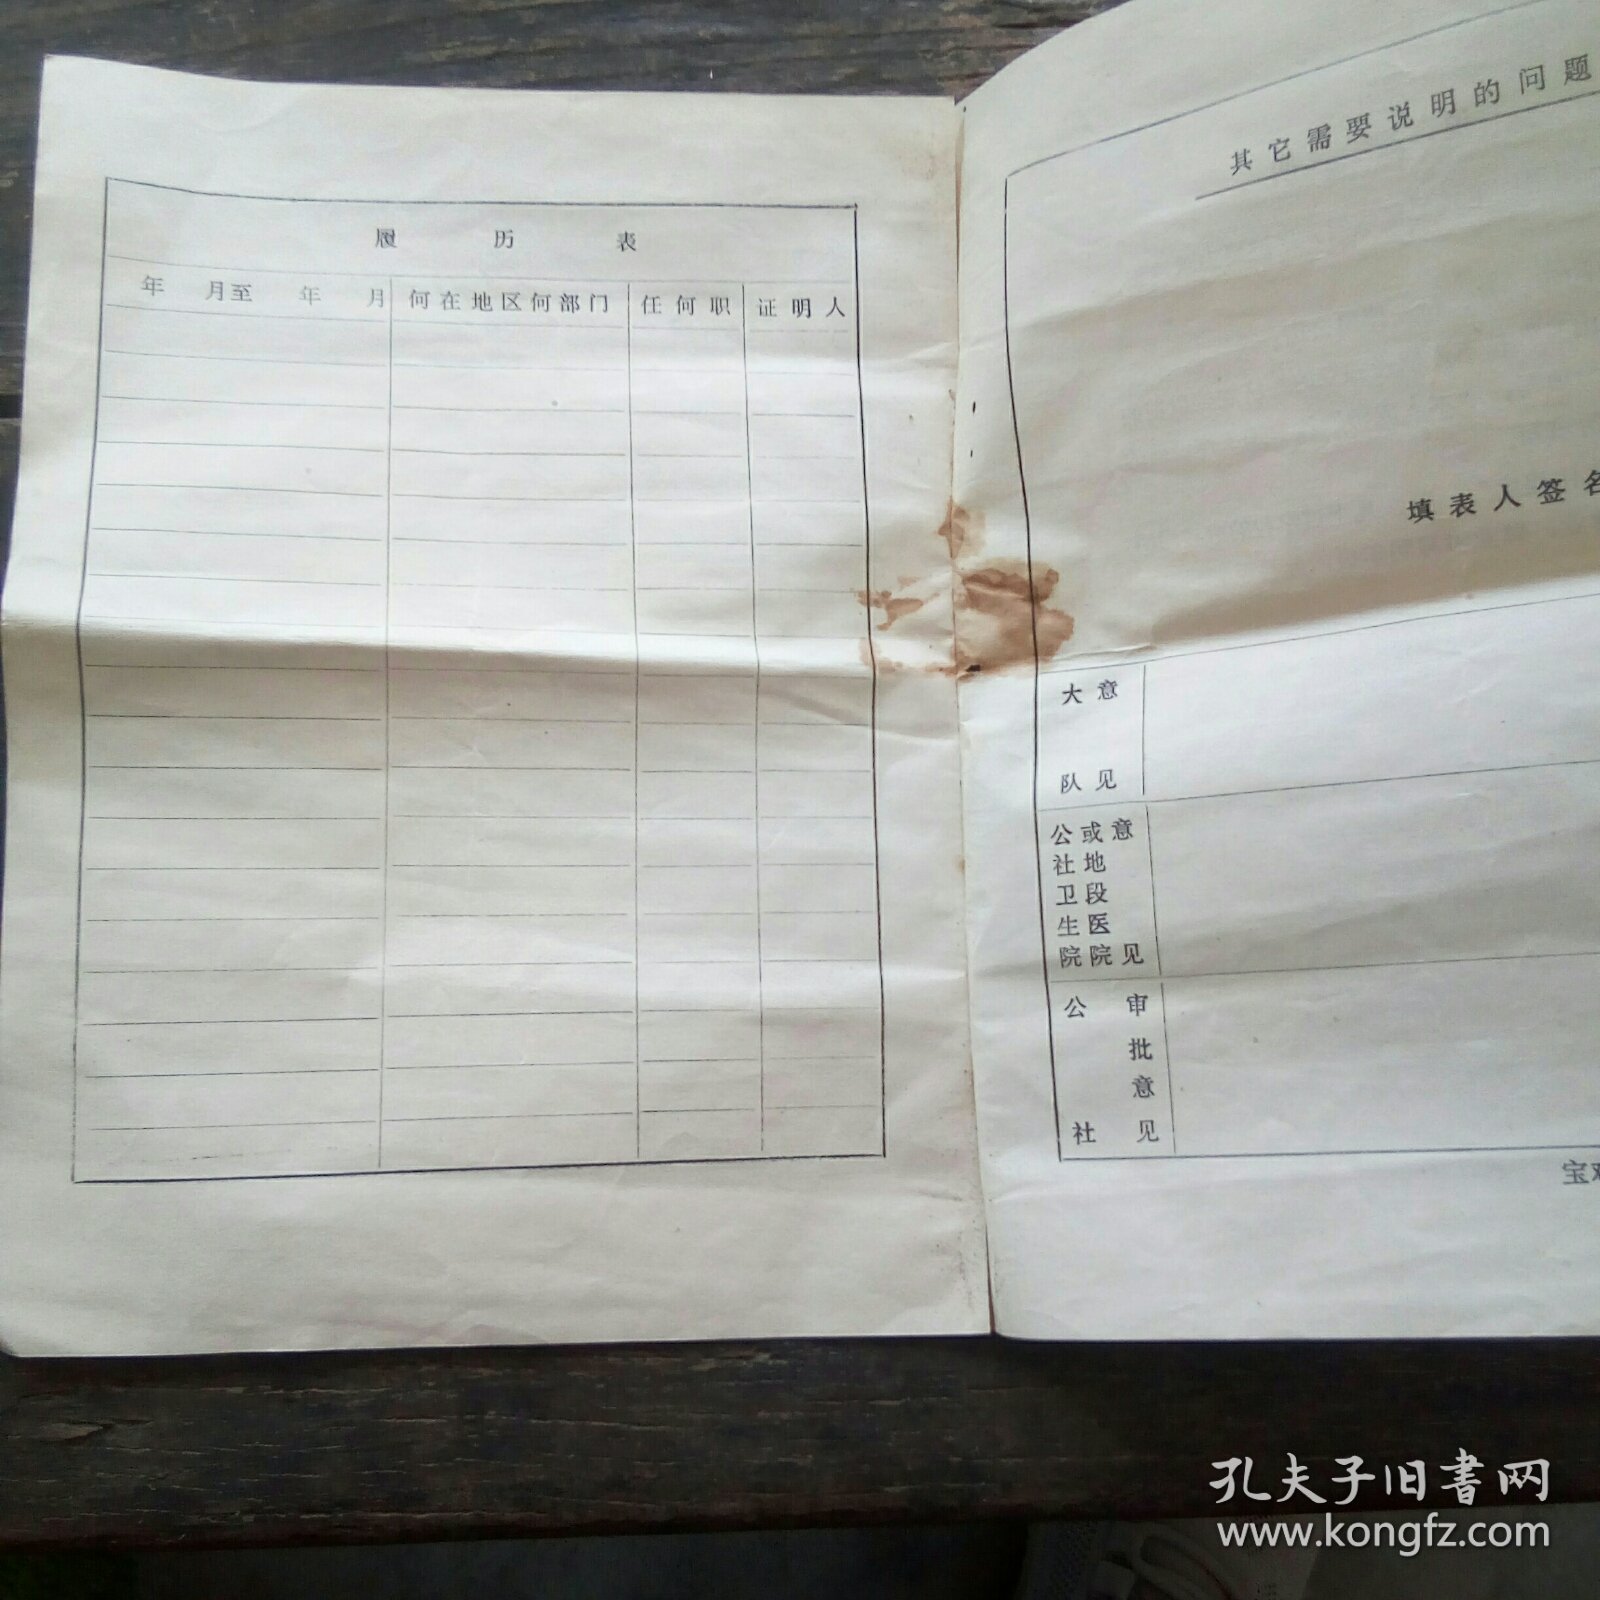 履历表
年 月至 年 月 何在地区何部门 任何职 证明人
其它需要说明的问题
填表人签名
大队意见
公社卫生院或地段医院意见
公社审批意见
宝
孔夫子旧书网
www.kongfz.com